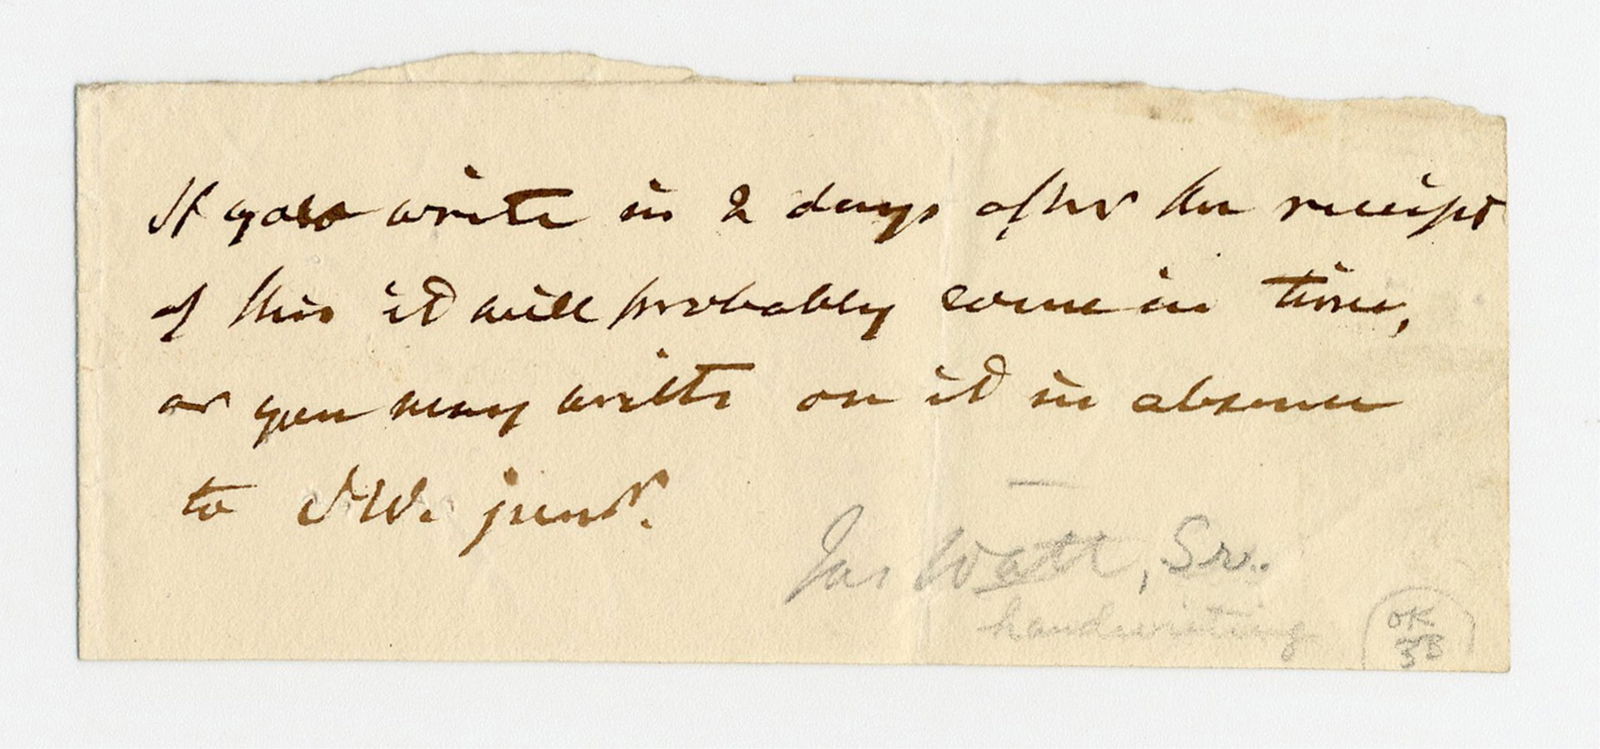 If you write in 2 days after the receipt
of this it will probably come in time,
or you may write on it in absence
to J.W. junr.
Jas Watt, Sr.
handwriting
OK
3B